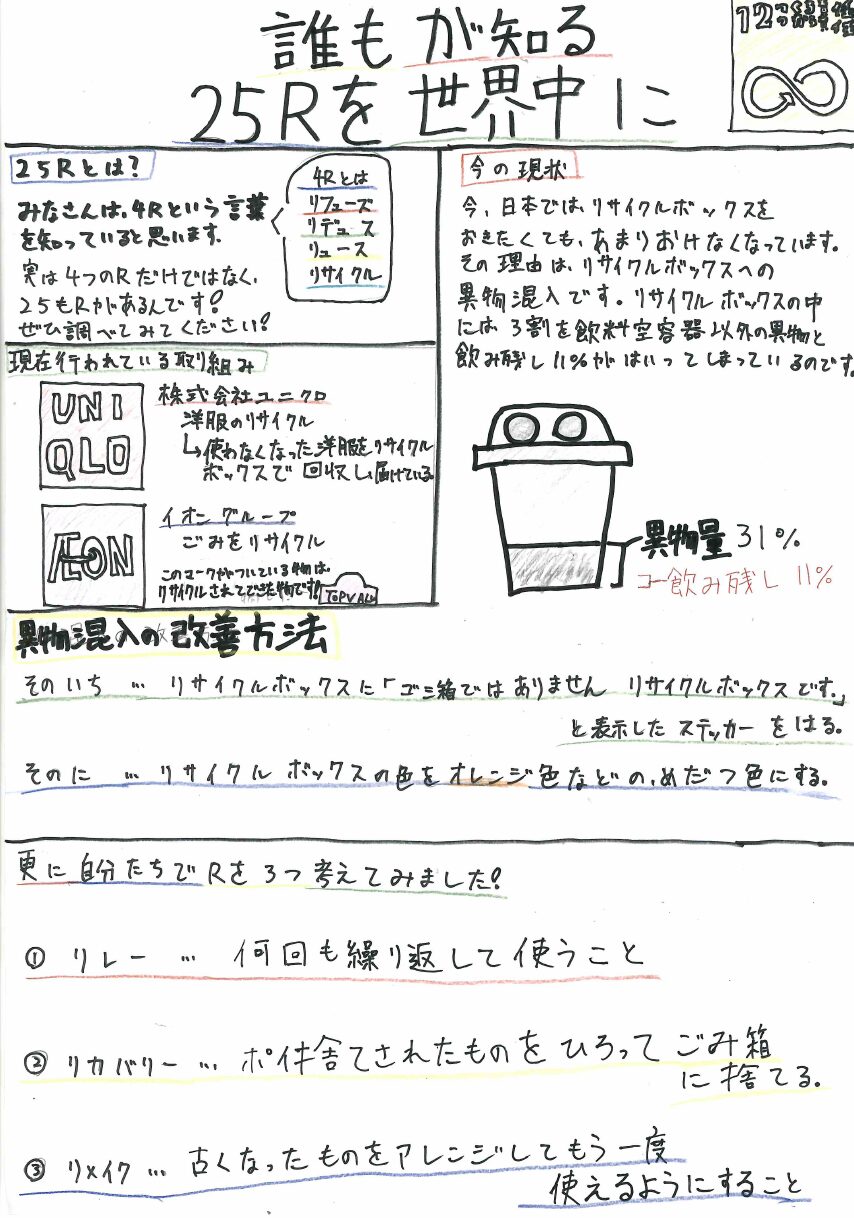 誰もが知る
25Rを世界中に
12つくる責任
25Rとは?
みなさんは、4Rという言葉
を知っていると思います。
実は4つのRだけではなく、
25もRがあるんです!
ぜひ調べてみてください!
4Rとは
リフューズ
リデュース
リュース
リサイクル
現在行われている取り組み
UNI
QLO
株式会社ユニクロ
洋服のリサイクル
↳使わなくなった洋服をリサイクル
ボックスで回収し、届けている。
ÆON
イオングループ
ごみをリサイクル
このマークがついている物は、
リサイクルされてできた物です!
TOPVALU
今の現状
今、日本では、リサイクルボックスを
おきたくても、あまりおけなくなっています。
その理由は、リサイクルボックスへの
異物混入です。リサイクルボックスの中
には3割を飲料空容器以外の異物と
飲み残し11%がはいってしまっているのです。
異物量31%
飲み残し11%
異物混入の改善方法
そのいち…リサイクルボックスに「ゴミ箱ではありません リサイクルボックスです。」
と表示したステッカーをはる。
そのに…リサイクルボックスの色をオレンジ色などの、めだつ色にする。
更に自分たちでRを3つ考えてみました!
① リレー… 何回も繰り返して使うこと
② リカバリー… ポイ捨てされたものをひろってごみ箱
に捨てる。
③ リメイク… 古くなったものをアレンジしてもう一度
使えるようにすること